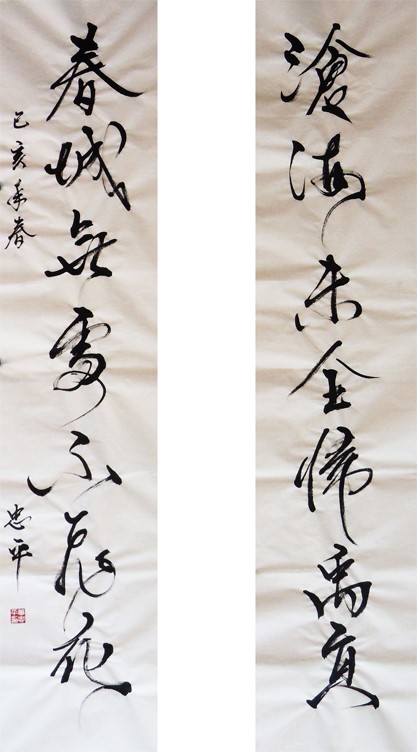 滄海未全歸禹貢
春城無處不飛花
己亥春
忠平